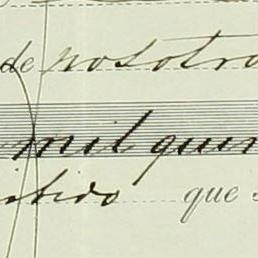 de nosotro
mil quin
itido que